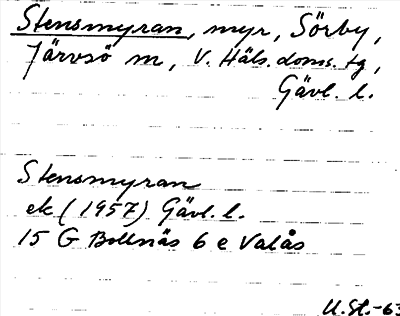 Stensmyran, myr, Sörby,
Järvsö sn, V. Häls. doms. tg,
Gävl. l.
Stensmyran
ek (1957) Gävl. l.
15 G Bollnäs 6 e Valås
U.St.-63